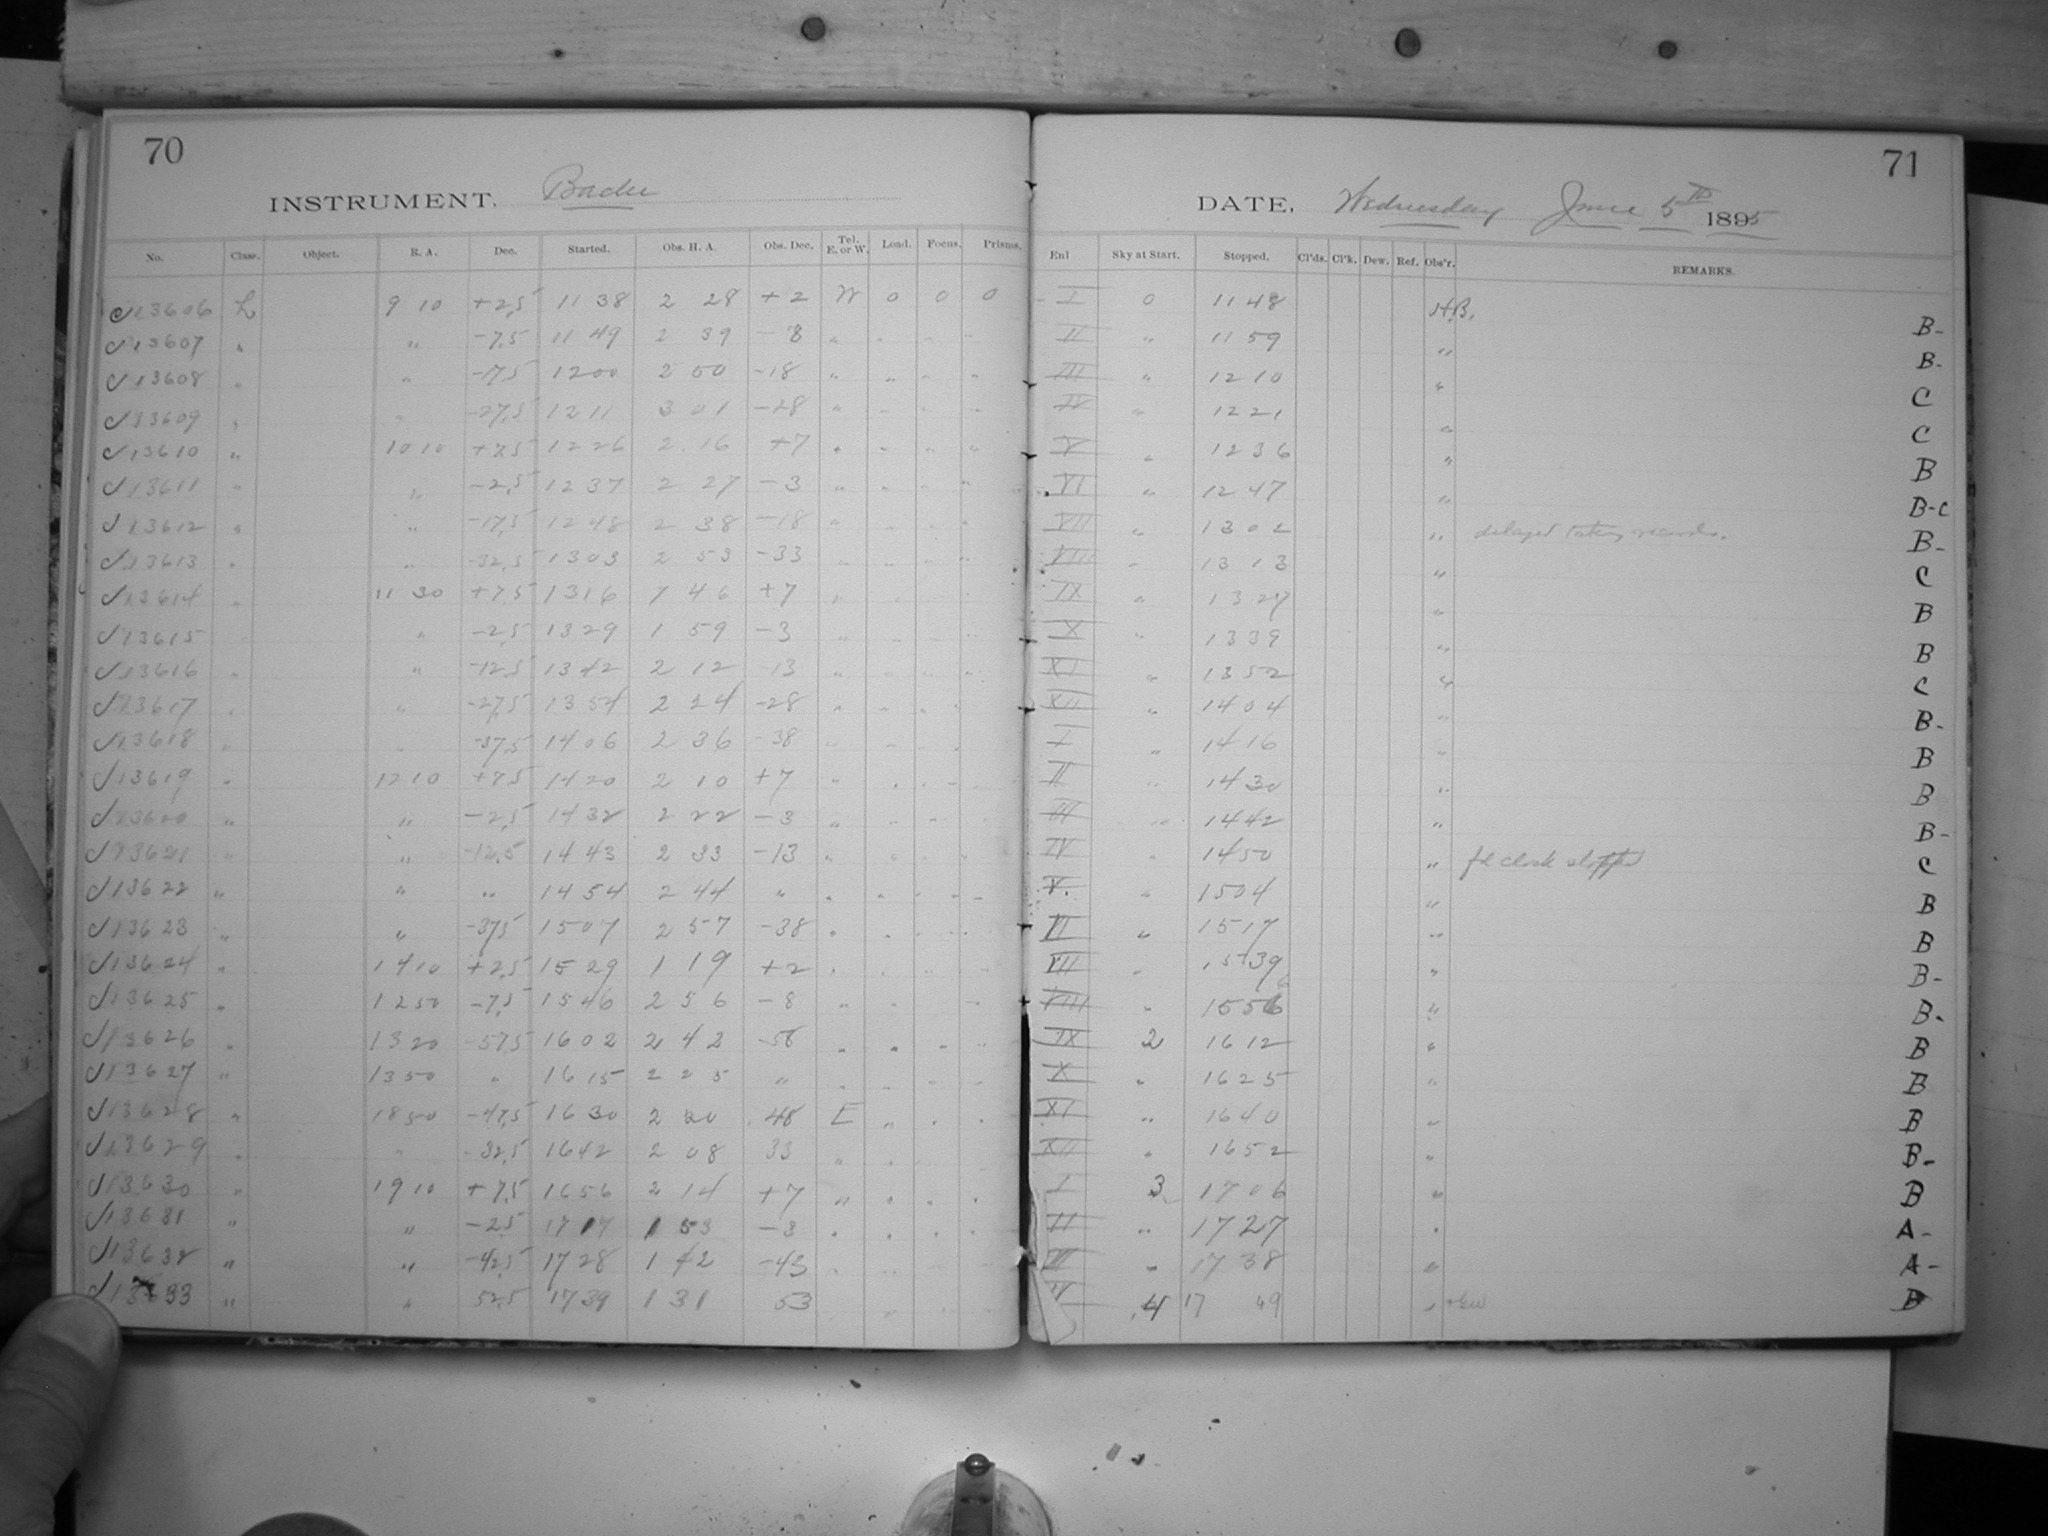 70
INSTRUMENT. Bache
No. Class. Object. R. A. Dec. Started. Obs. H. A. Obs. Dec. Tel. E. or W. Load. Focus. Prisms.
13606 L 9 10 +2,5 11 38 2 28 +2 W 0 0 0
13607 " " -7,5 11 49 2 39 -8 " " " "
13608 " " -17,5 12 00 2 50 -18 " " " "
13609 " " -27,5 12 11 3 01 -28 " " " "
13610 " 10 10 +7,5 12 26 2 16 +7 " " " "
13611 " " -2,5 12 37 2 27 -3 " " " "
13612 " " -17,5 12 48 2 38 -18 " " " "
13613 " " -32,5 13 03 2 53 -33 " " " "
13614 " 11 30 +7,5 13 16 1 46 +7 " " " "
13615 " " -2,5 13 29 1 59 -3 " " " "
13616 " " -12,5 13 42 2 12 -13 " " " "
13617 " " -27,5 13 54 2 24 -28 " " " "
13618 " " -37,5 14 06 2 36 -38 " " " "
13619 " 12 10 +7,5 14 20 2 10 +7 " " " "
13620 " " -2,5 14 32 2 22 -3 " " " "
13621 " " -12,5 14 43 2 33 -13 " " " "
13622 " " " 14 54 2 44 " " " " "
13623 " " -37,5 15 07 2 57 -38 " " " "
13624 " 14 10 +2,5 15 29 1 19 +2 " " " "
13625 " 12 50 -7,5 15 46 2 56 -8 " " " "
13626 " 13 20 -57,5 16 02 2 42 -58 " " " "
13627 " 13 50 " 16 15 2 25 " " " " "
13628 " 18 50 -47,5 16 30 2 20 48 E " " "
13629 " " -32,5 16 42 2 08 33 " " " "
13630 " 19 10 +7,5 16 56 2 14 +7 " " " "
13631 " " -2,5 17 17 1 53 -3 " " " "
13632 " " -42,5 17 28 1 42 -43 " " " "
13633 " " 52,5 17 39 1 31 53
71
DATE, Wednesday June 5th 1895
Enl Sky at Start. Stopped. Cl'ds. Cl'k. Dew. Ref. Obs'r. REMARKS.
I 0 11 48 H.B. B-
II " 11 59 " B-
III " 12 10 " C
IV " 12 21 " C
V " 12 36 " B
VI " 12 47 " B-C
VII " 13 02 " delayed taking records. B-
VIII " 13 13 " C
IX " 13 27 " B
X " 13 39 " B
XI " 13 52 " C
XII " 14 04 " B-
I " 14 16 " B
II " 14 30 " B
III " 14 42 " B-
IV " 14 50 " fd clock stopped C
V. " 15 04 " B
VI " 15 17 " B
VII " 15 39 " B-
VIII " 15 56 " B-
IX 2 16 12 " B
X " 16 25 " B
XI " 16 40 " B
XII " 16 52 " B-
I 3 17 06 " B
II " 17 27 " A-
III " 17 38 " A-
4 17 49 " B